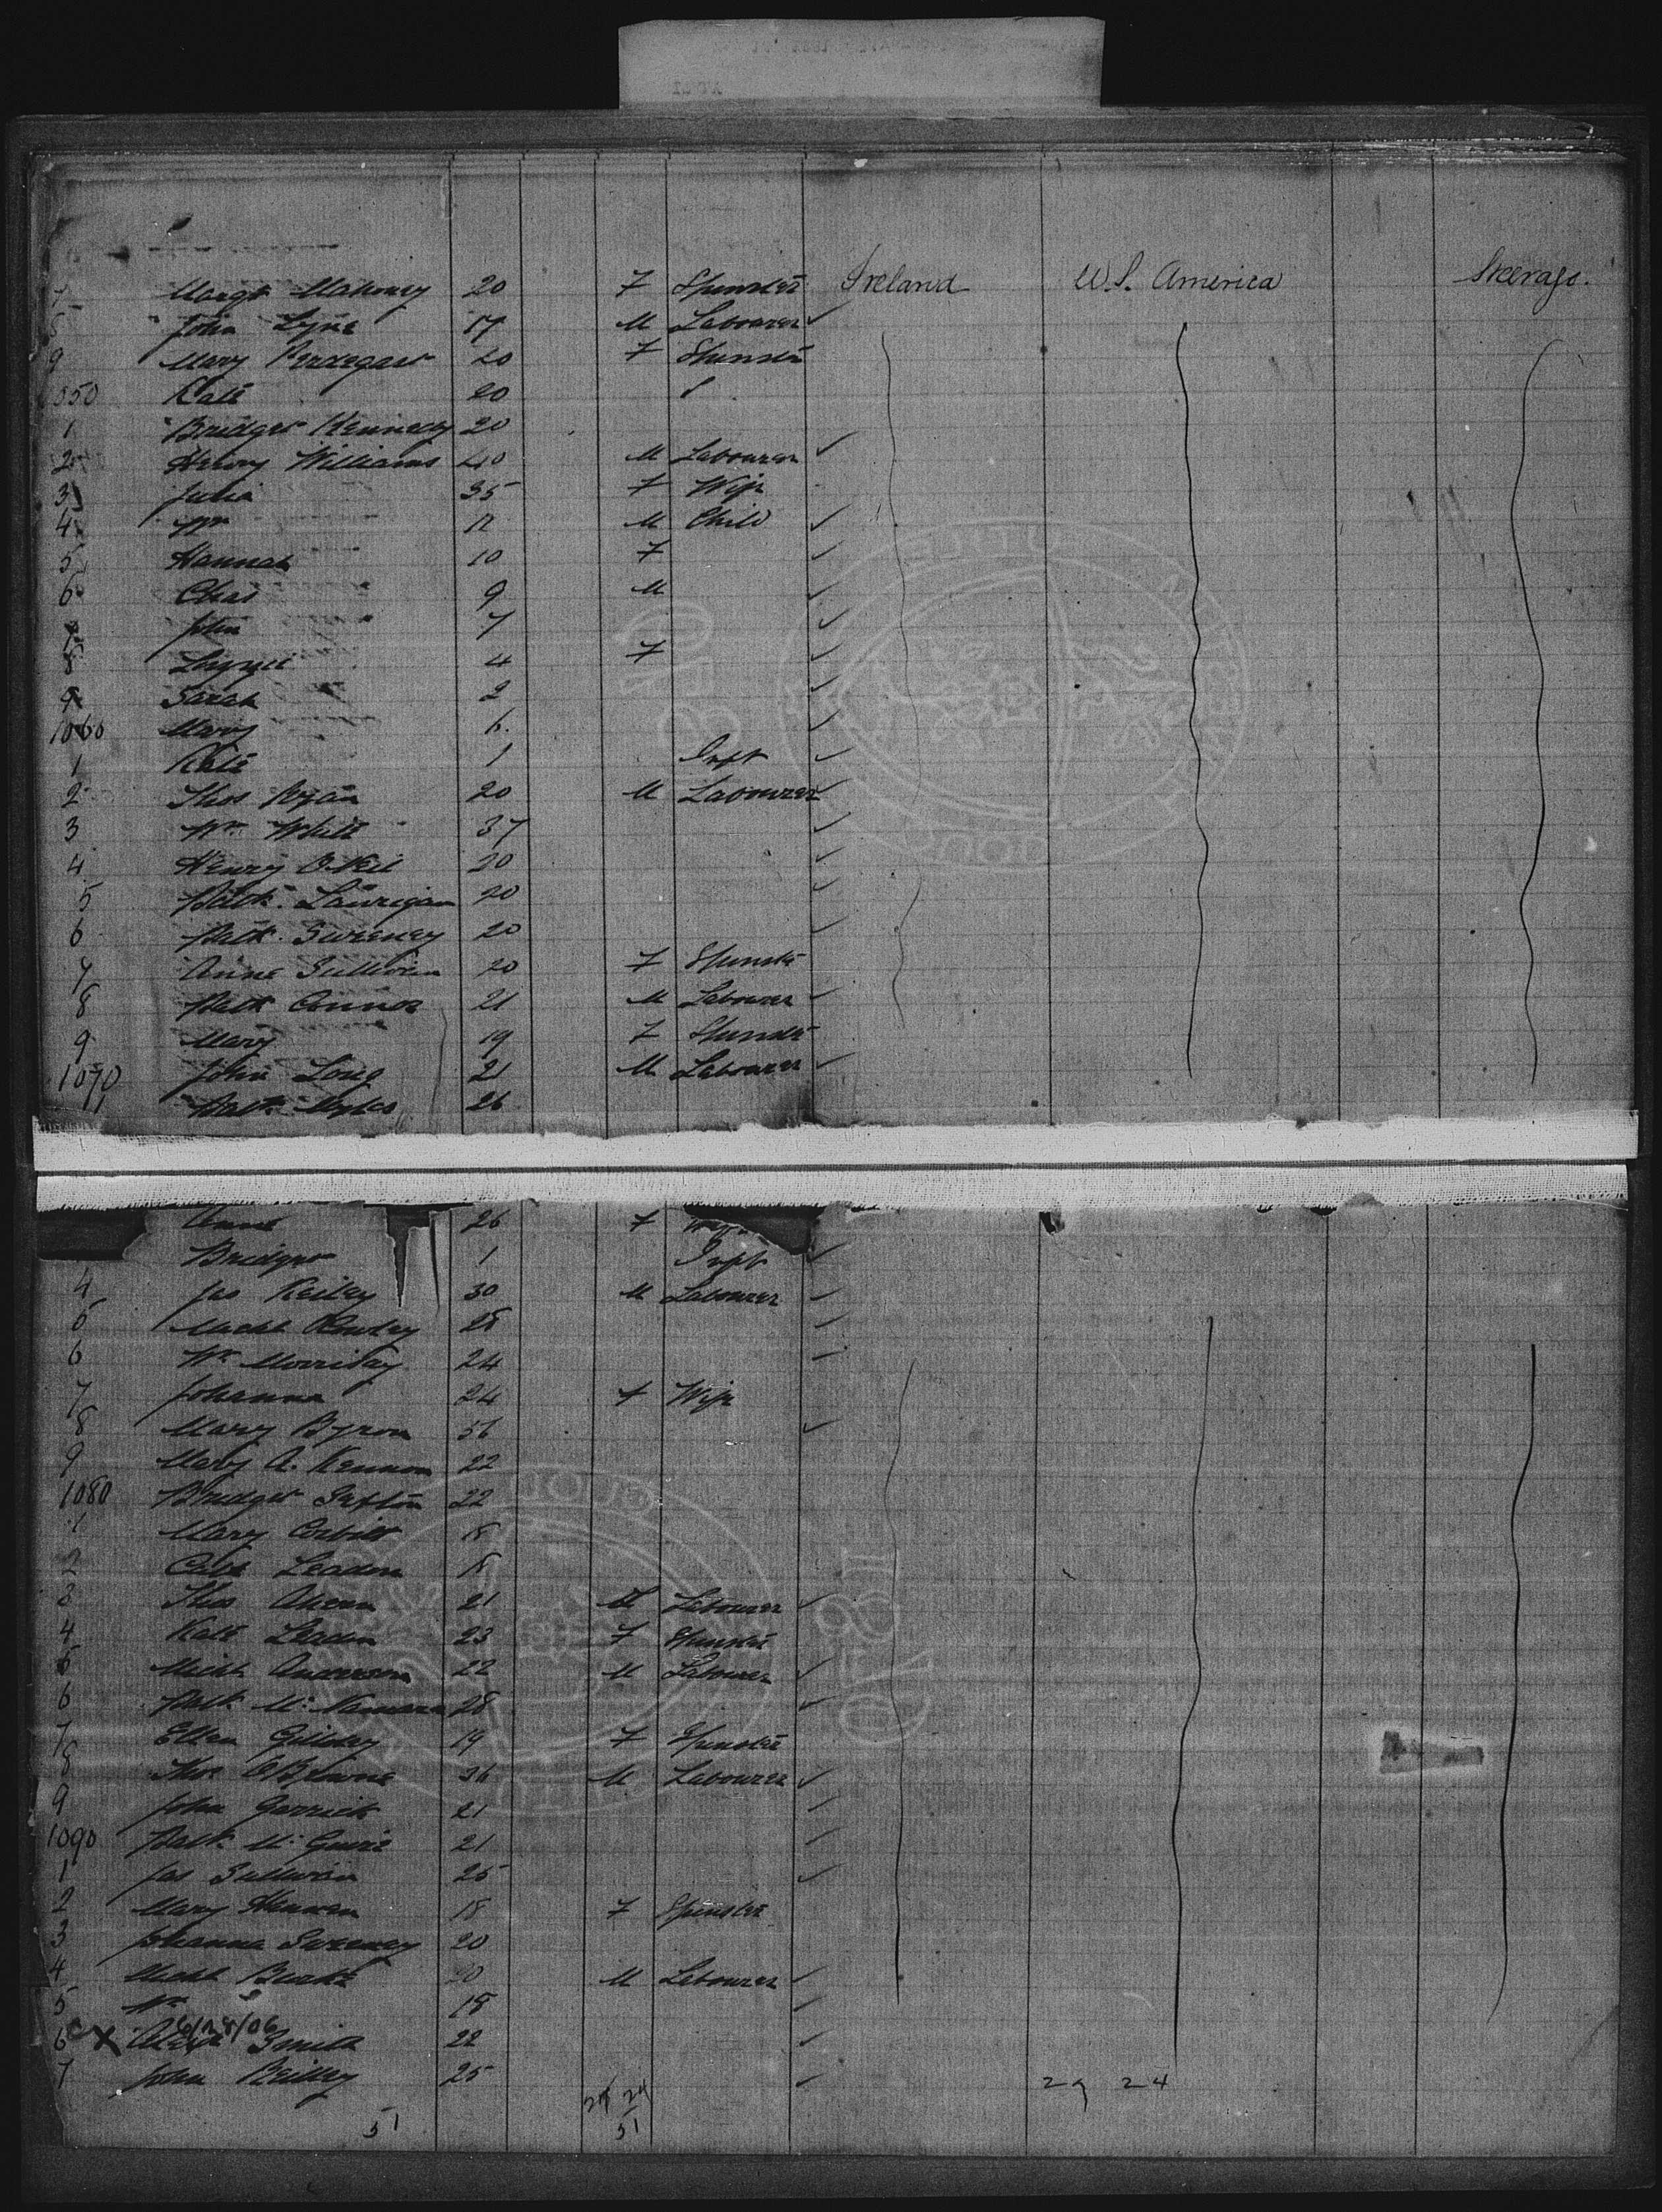 7 Margt Mahoney 20 F Spinster Ireland U.S. America Steerage.
8 John Lyne 17 M Labourer
9 Mary Pendegast 20 F Spinster
1050 Kate 20
1 Bridget Kennedy 20
2 Henry Williams 40 M Labourer
3 Julia 35 F Wife
4 Wm 12 M Child
5 Hannah 10 F
6 Chas 9 M
7 John 7
8 Lizzie 4 F
9 Sarah 2
1060 Mary
1 Kate 1 Inft
2 Thos Ryan 20 M Labourer
3 Wm White 37
4 Henry O'Neil 20
5 Patk. Laurigan 20
6 Patk. Sweeney 20
7 Anne Sullivan 20 F Spinster
8 Patk Connor 21 M Labourer
9 Mary 19 F Spinster
1070 John Long 21 M Labourer
1 Patk. Myles 26
Anne 26 F Wife
Bridget 1 Inft
4 Jas Keiley 30 M Labourer
5 Michl 28
6 Wm Morrisay 24
7 Johanna 24 F Wife
8 Mary Byron 56
9 Mary A. Kennon 22
1080 Bridget Sexton 22
1 Mary Corbitt 18
2 Cath Leaden 18
3 Thos Ahern 21 M Labourer
4 Kate Leaden 23 F Spinster
5 Michl Anderson 22 M Labourer
6 Patk. McNamara 28
7 Ellen Gilidey 19 F Spinster
8 Thos O'Browne 36 M Labourer
9 John Garrick 21
1090 Patk. McGuire 21
1 Jas Sullivan 25
2 Mary Heenan 18 F Spinster
3 Johanna Sweeney 20
4 Michl Burke 20 M Labourer
5 Wm 18
6/28/06
6 X Smith 22
7 John Reilley 25
29 24
51
27 24
51